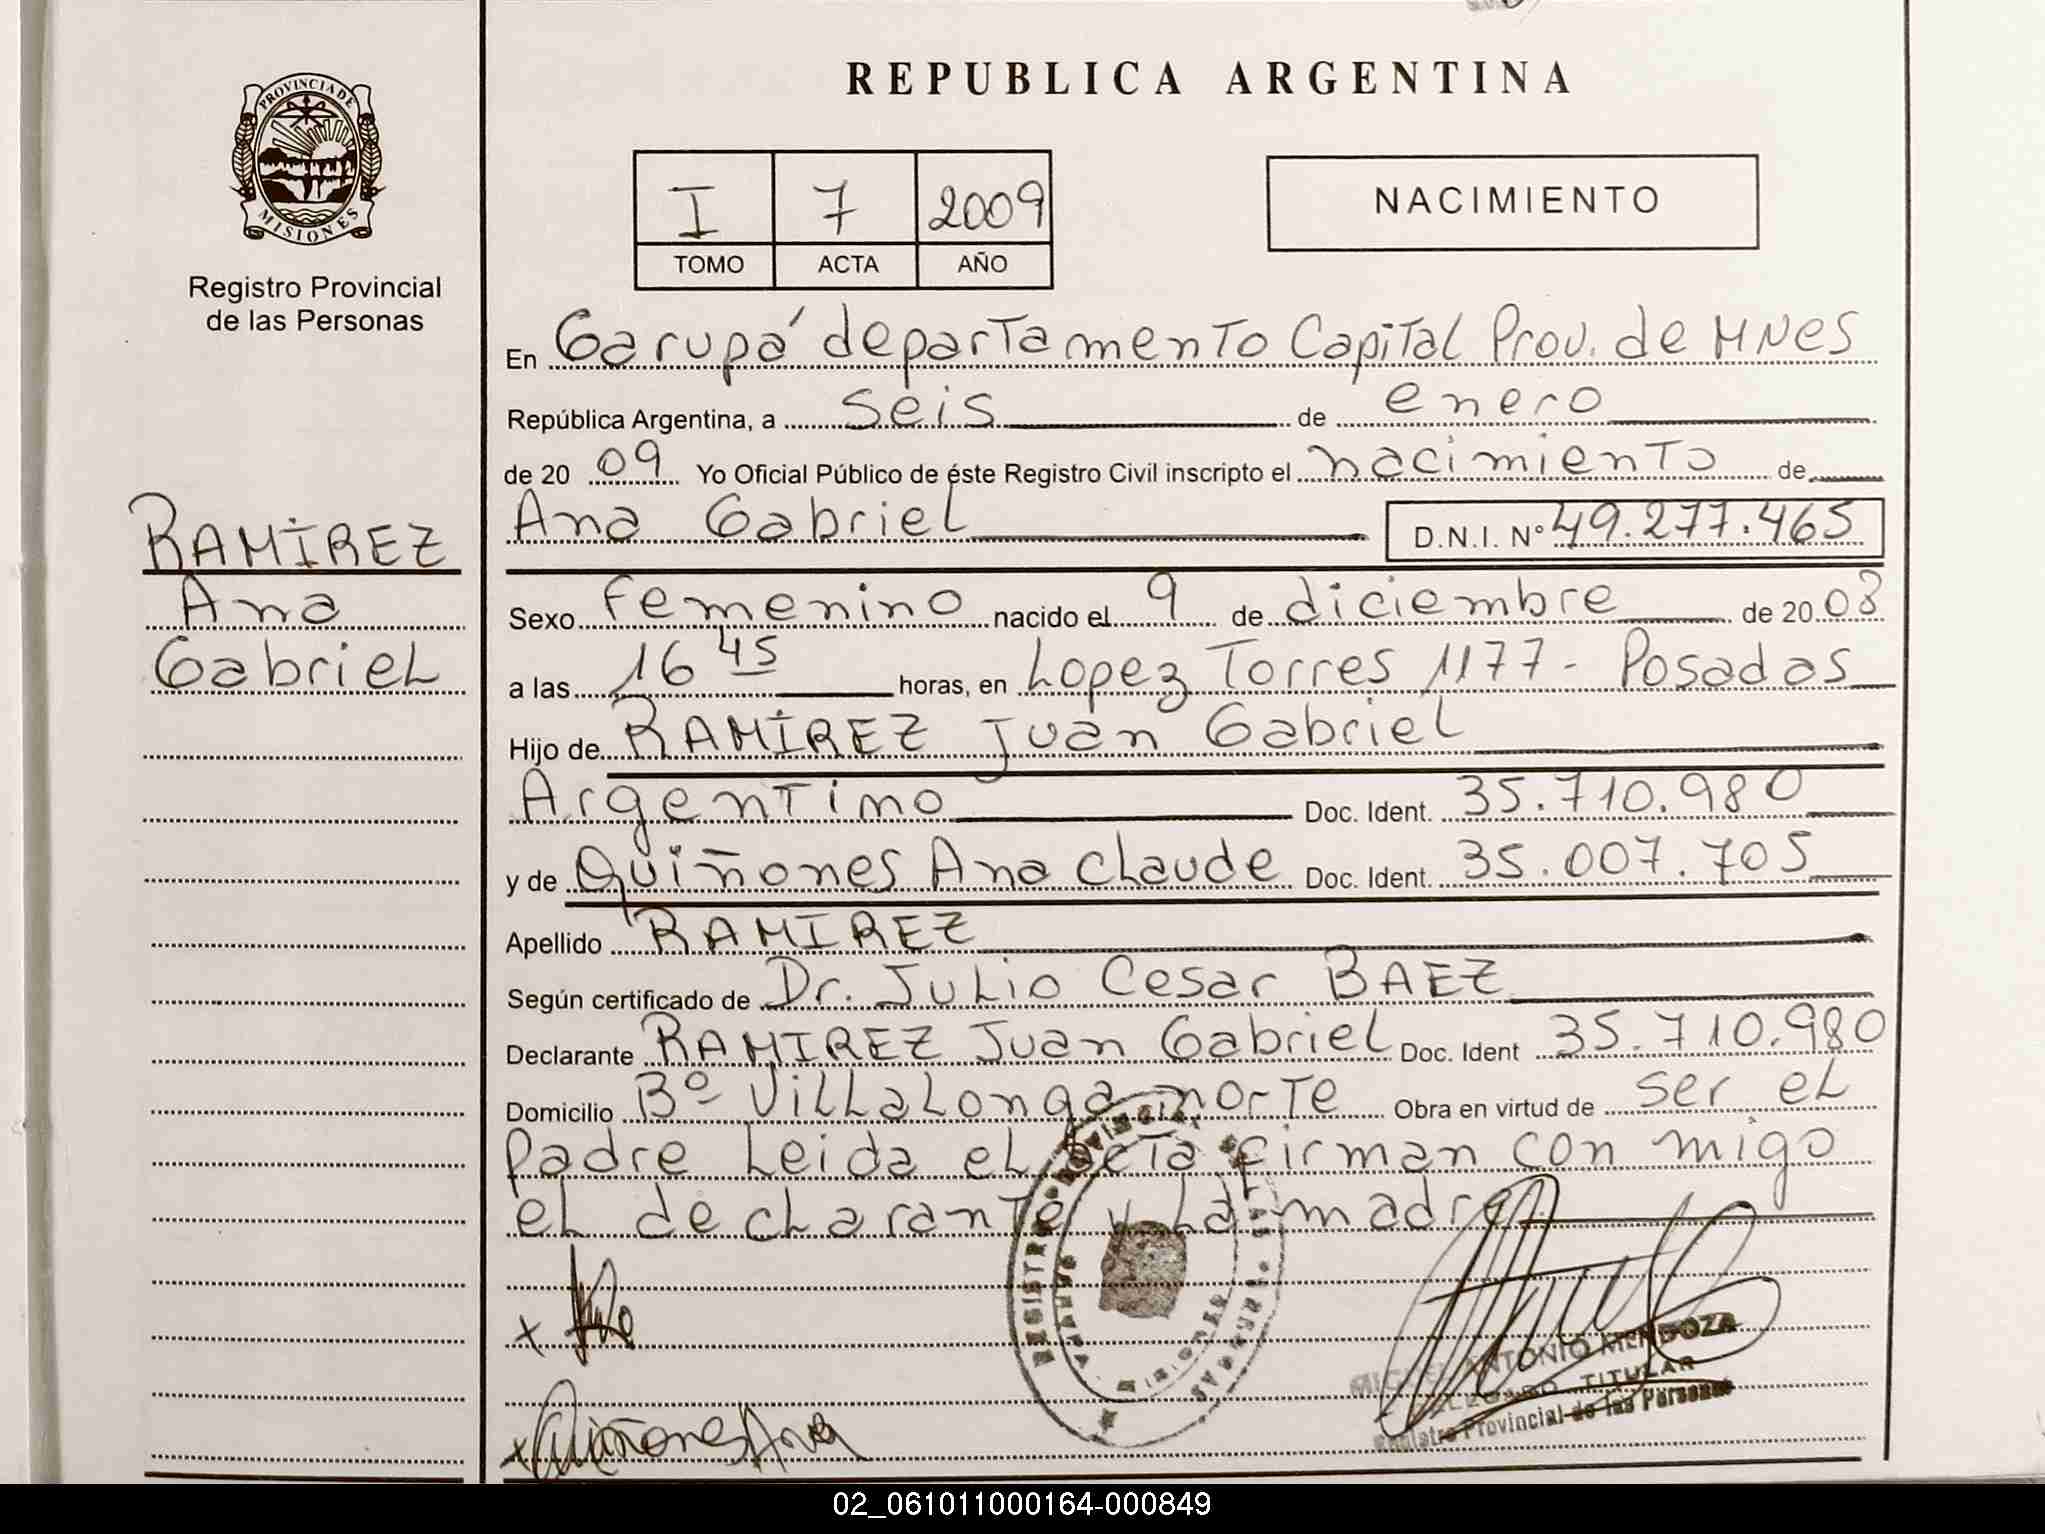 PROVINCIA DE
MISIONES
Registro Provincial
de las Personas
RAMÍREZ
Ana
GabrieL
REPUBLICA ARGENTINA
I 7 2009
TOMO ACTA AÑO
NACIMIENTO
En Garupá departamento Capital Prov. de MNes
República Argentina, a seis de enero
de 20 09 Yo Oficial Público de éste Registro Civil inscripto el nacimiento de
Ana Gabriel D.N.I. Nº 49.277.465
Sexo femenino nacido el 9 de diciembre de 20 08
a las 16 45 horas, en Lopez Torres 1177 - Posadas
Hijo de RAMÍREZ Juan Gabriel
Argentino Doc. Ident. 35.710.980
y de Quiñones Ana Claude Doc. Ident. 35.007.705
Apellido RAMIREZ
Según certificado de Dr. Julio Cesar BAEZ
Declarante RAMIREZ Juan Gabriel Doc. Ident 35.710.980
Domicilio Bº Villalonga norte Obra en virtud de ser el
padre Leida el acta firman con migo
el declarante y La madre
x
x Quiñones Ana
REGISTRO PROVINCIAL DE LAS PERSONAS
MIGUEL ANTONIO MENDOZA
DELEGADO TITULAR
Registro Provincial de las Personas
02_061011000164-000849